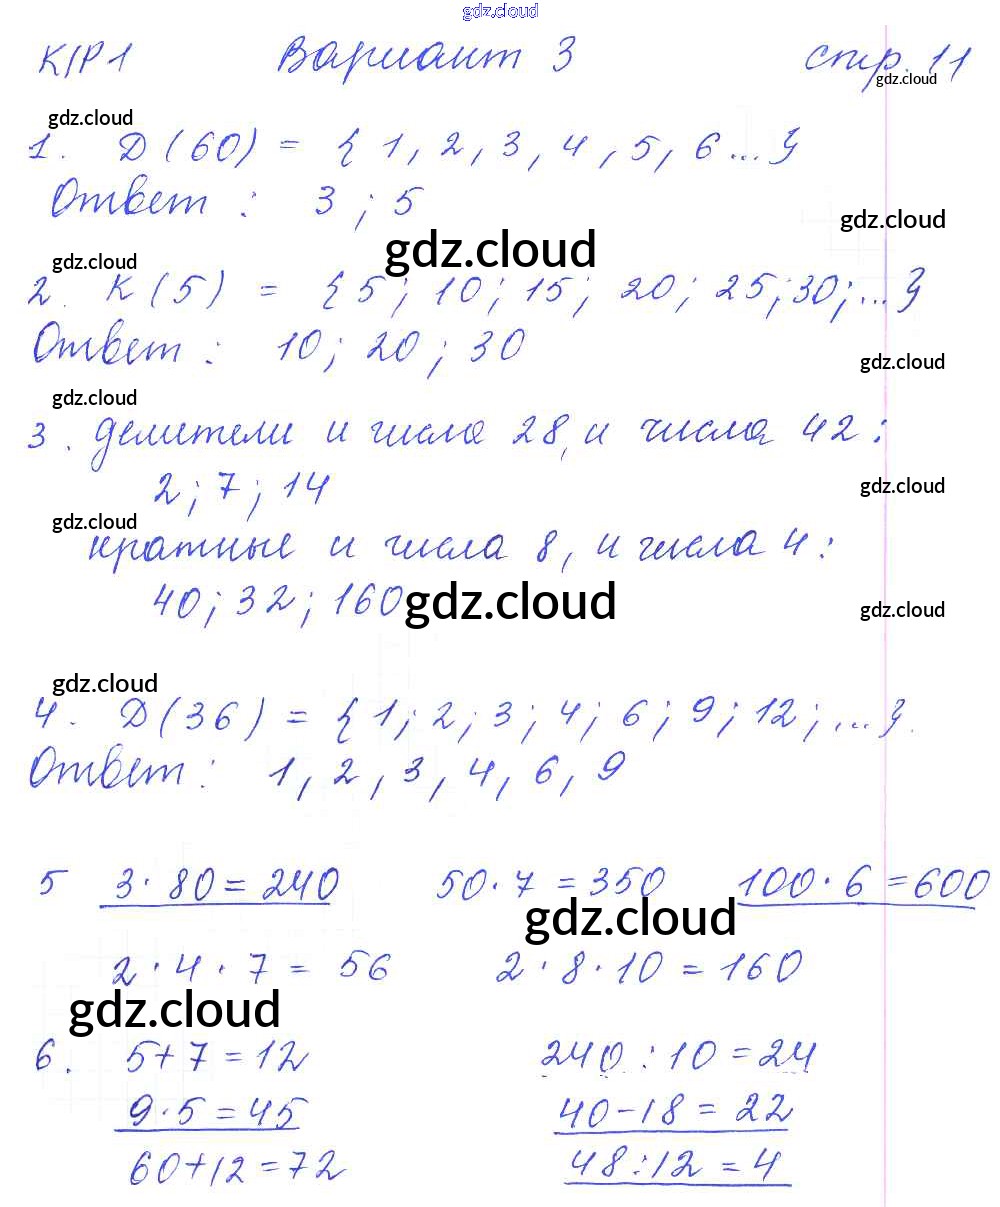 gdz.cloud
К/Р 1 Вариант 3 стр. 11
gdz.cloud
gdz.cloud
1. D (60) = { 1, 2, 3, 4, 5, 6 ... }
Ответ : 3 ; 5
gdz.cloud
gdz.cloud
gdz.cloud
2. К (5) = { 5 ; 10 ; 15 ; 20 ; 25 ; 30 ; ... }
Ответ : 10 ; 20 ; 30
gdz.cloud
gdz.cloud
3. делители и числа 28, и числа 42 :
2 ; 7 ; 14
gdz.cloud
gdz.cloud
кратные и числа 8, и числа 4 :
40 ; 32 ; 160
gdz.cloud
gdz.cloud
gdz.cloud
4. D (36) = { 1 ; 2 ; 3 ; 4 ; 6 ; 9 ; 12 ; ... }.
Ответ : 1, 2, 3, 4, 6, 9
5 3 · 80 = 240 50 · 7 = 350 100 · 6 = 600
gdz.cloud
2 · 4 · 7 = 56 2 · 8 · 10 = 160
gdz.cloud
6. 5 + 7 = 12 240 : 10 = 24
9 · 5 = 45 40 - 18 = 22
60 + 12 = 72 48 : 12 = 4